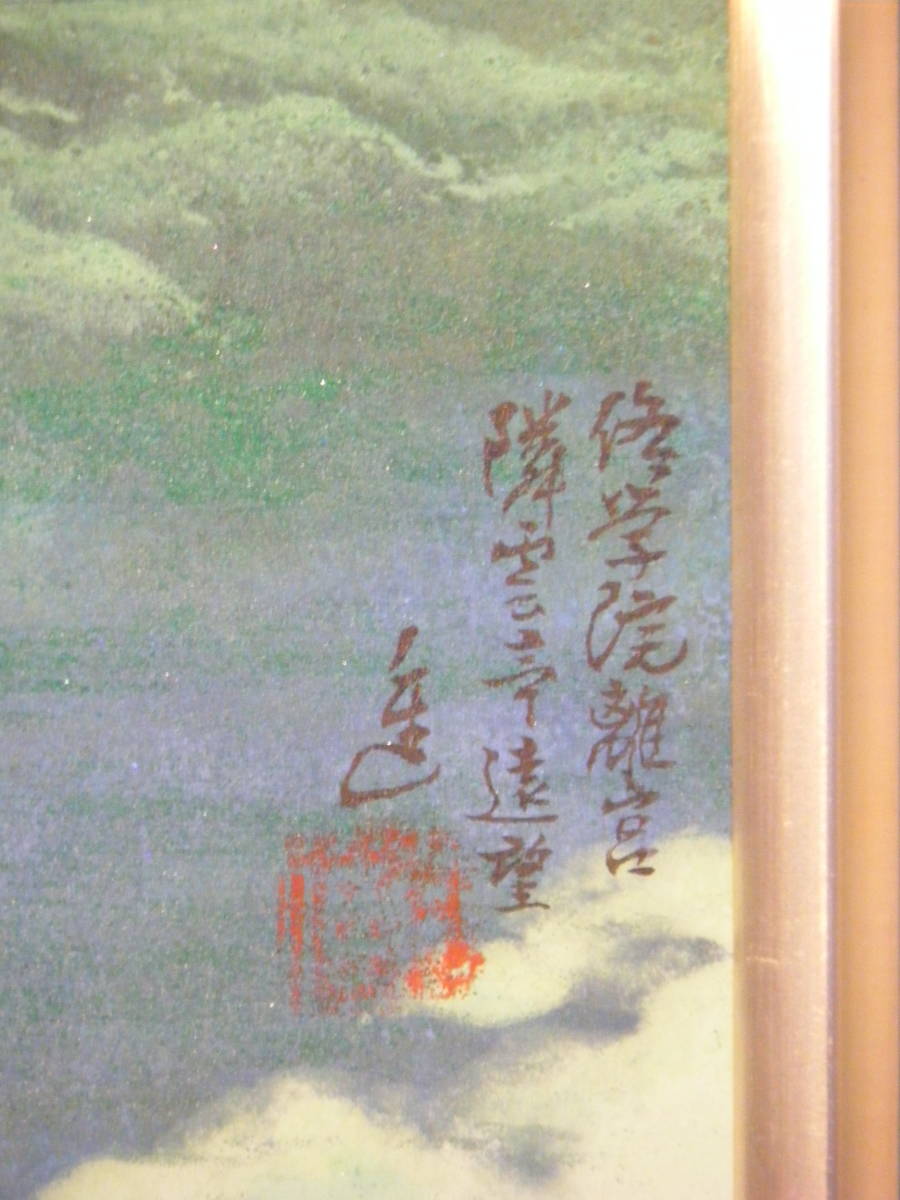 修学院離宮
隣雲亭遠望